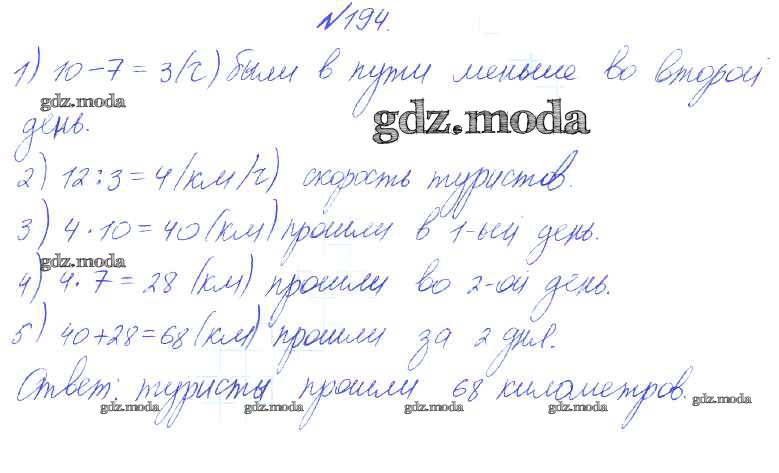 №194.
1) 10-7=3(ч) были в пути меньше во второй
gdz.moda
gdz.moda
день.
2) 12:3=4(км/ч) скорость туристов.
3) 4·10=40(км) прошли в 1-ый день.
gdz.moda
4) 4·7=28(км) прошли во 2-ой день.
5) 40+28=68(км) прошли за 2 дня.
Ответ: туристы прошли 68 километров.
gdz.moda gdz.moda gdz.moda gdz.moda gdz.moda